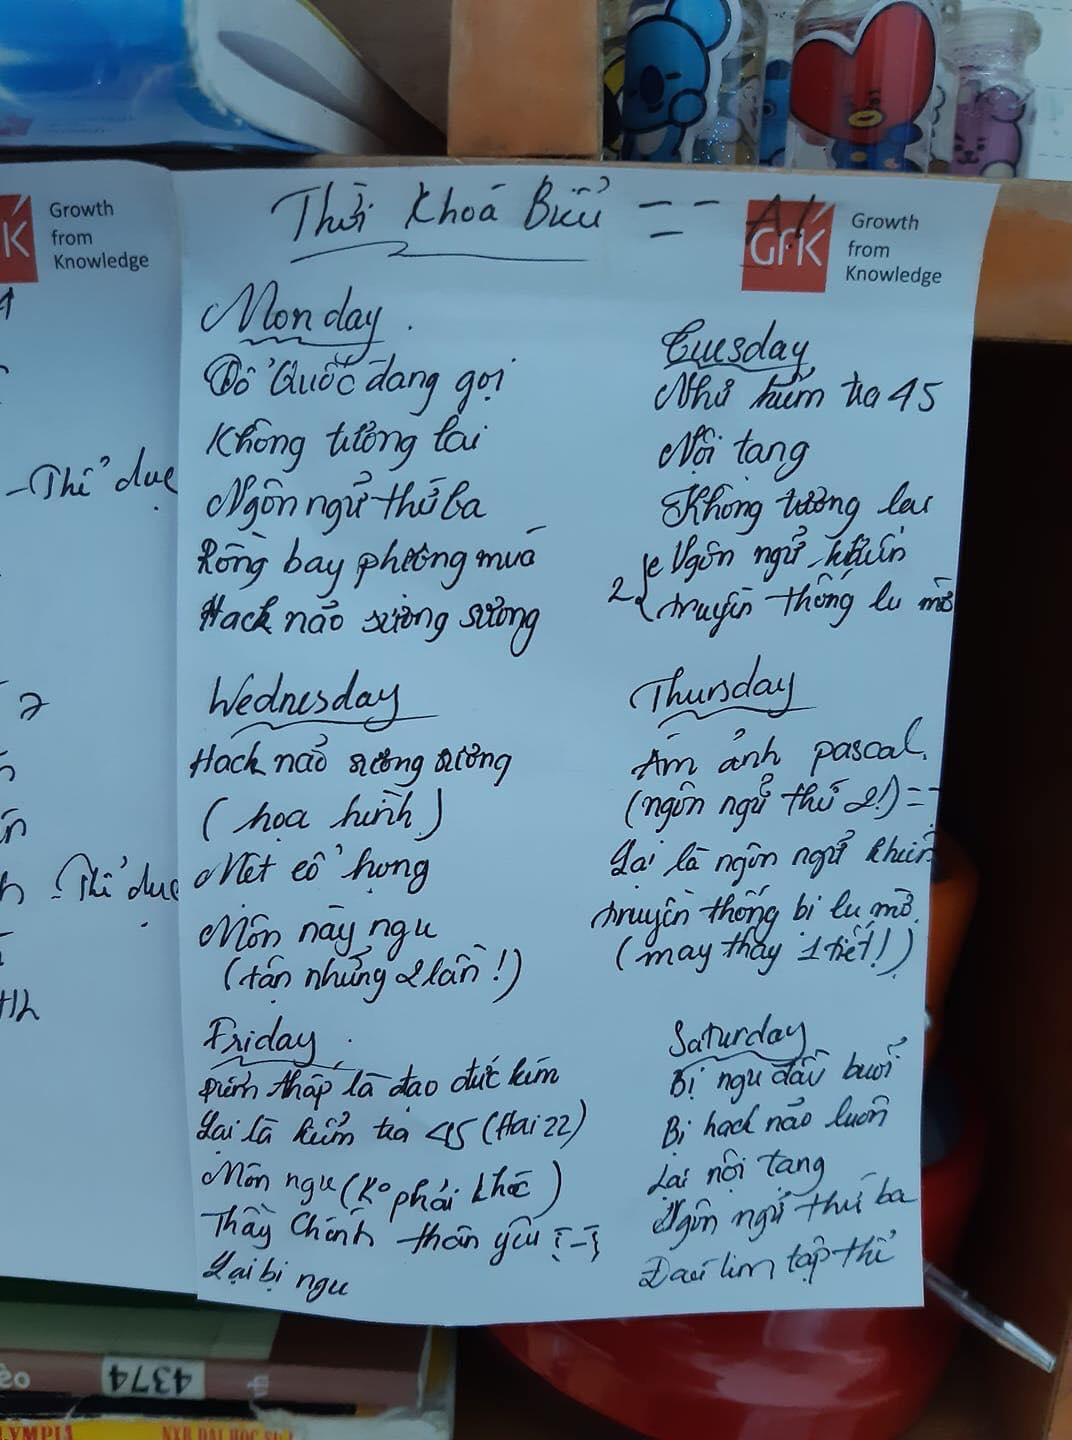 Growth
from
Knowledge
Thời Khoá Biểu = = A!
GfK
Growth
from
Knowledge
Monday.
Tổ Quốc đang gọi
Không tương lai
Ngôn ngữ thứ ba
Rồng bay phượng múa
Hack não sương sương
Tuesday
Như kiểm tra 45
Nội tạng
Không tương lai
2 Ngôn ngữ khiến
truyền thống lu mờ
Wednesday
Hack não sương sương
(họa hình)
Mét cổ họng
Môn này ngu
(tận những 2 lần!)
Thursday
Ám ảnh pascal.
(ngôn ngữ thứ 2!) = =
Lại là ngôn ngữ khiến
truyền thống bị lu mờ.
(may thấy 1 tiết!)
Friday.
Điểm thấp là đạo đức kém
Lại là kiểm tra 45 (Hai 22)
Môn ngu (Ko phải khóc)
Thầy Chính thân yêu
Lại bị ngu
Saturday
Bị ngu đầu buổi
Bị hack não luôn
Lại nội tạng
Ngôn ngữ thứ ba
Đau tim tập thể
- Thể dục
- Thể dục
4374